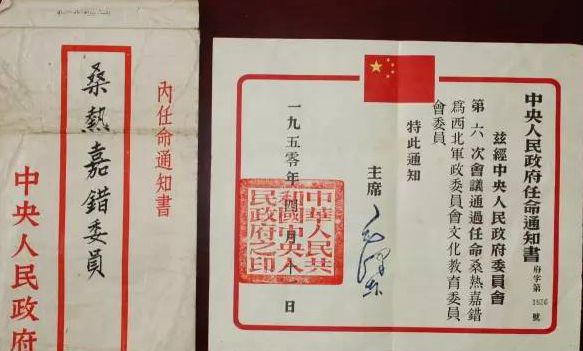 内任命通知書
桑熱嘉錯委員
中央人民政府
中央人民政府任命通知書
府字第1836號
茲經中央人民政府委員會
第六次會議通過任命桑熱嘉錯
爲西北軍政委員會文化教育委員
會委員
特此通知
主席
毛澤東
一九五零年四月十 日
中華人民共
和國中央人
民政府之印